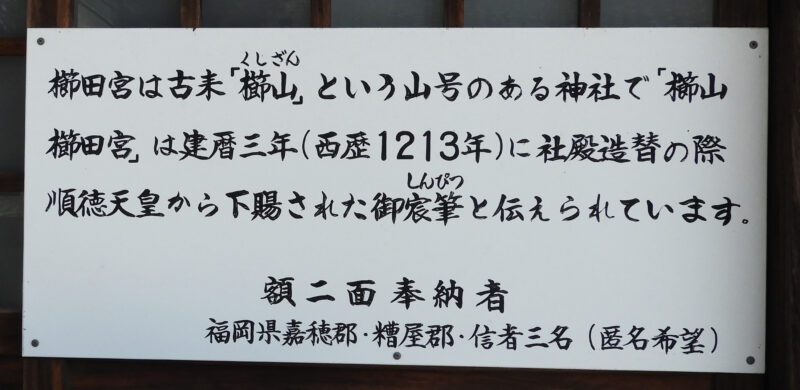 櫛田宮は古来「櫛山」という山号のある神社で「櫛山
くしざん
櫛田宮」は建暦三年(西歴1213年)に社殿造替の際
順徳天皇から下賜された御宸筆と伝えられています。
しんぴつ
額二面奉納者
福岡県嘉穂郡・糟屋郡・信者三名(匿名希望)